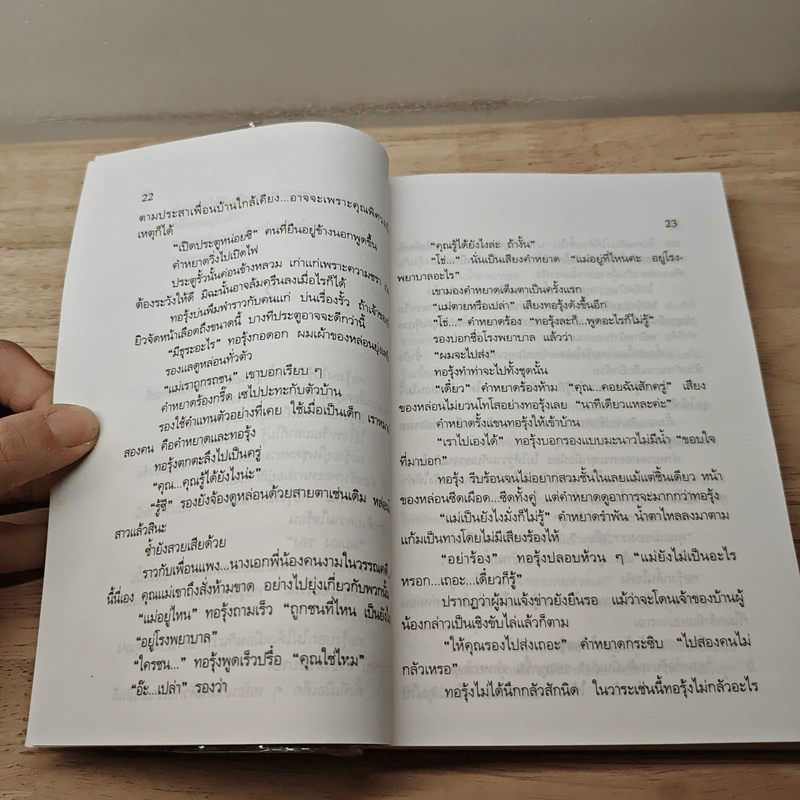 22
ตามประสาเพื่อนบ้านใกล้เคียง...อาจจะเพราะคุณพิศวง
เหตุก็ได้
“เปิดประตูหน่อยซิ” คนที่ยืนอยู่ข้างนอกพูดขึ้น
คำหยาดวิ่งไปเปิดไฟ
ประตูรั้วนั้นค่อนข้างหลวม เก่าแก่เพราะความชรา
ต้องระวังให้ดี มิฉะนั้นอาจล้มครืนลงเมื่อไรก็ได้
ทอรุ้งบ่นพึมพำราวกับคนแก่ บ่นเรื่องรั้ว ถ้าเจ้าของ
ยิวจัดหน้าเลือดถึงขนาดนี้ บางทีประตูอาจจะดีกว่านี้
“มีธุระอะไร” ทอรุ้งกอดอก ผมเผ้าของหล่อนยุ่งเหยิง
รองแลดูหล่อนทั่วตัว
“แม่เราถูกรถชน” เขาบอกเรียบ ๆ
คำหยาดร้องกรี๊ด เซไปปะทะกับตัวบ้าน
รองใช้คำแทนตัวอย่างที่เคย ใช้เมื่อเป็นเด็ก เราหมาย
สองคน คือคำหยาดและทอรุ้ง
ทอรุ้งตกตะลึงไปเป็นครู่
“คุณ...คุณรู้ได้ยังไงน่ะ”
“รู้ซี” รองยังจ้องดูหล่อนด้วยสายตาเช่นเดิม หล่อน
สาวแล้วสินะ
ซ้ำยังสวยเสียด้วย
ราวกับเพื่อนแพง...นางเอกพี่น้องคนงามในวรรณคดี
นี้นี่เอง คุณแม่เขาถึงสั่งห้ามขาด อย่างไปยุ่งเกี่ยวกับพวกนั้น
“แม่อยู่ไหน” ทอรุ้งถามเร็ว “ถูกชนที่ไหน เป็นยังไง
“อยู่โรงพยาบาล”
“ใครชน...” ทอรุ้งพูดเร็วปรื๋อ “คุณใช่ไหม”
“อ๊ะ...เปล่า” รองว่า
23
“คุณรู้ได้ยังไงล่ะ ถ้างั้น”
“โธ่...” นั่นเป็นเสียงคำหยาด “แม่อยู่ที่ไหนคะ อยู่โรง-
พยาบาลอะไร”
เขามองคำหยาดเต็มตาเป็นครั้งแรก
“แม่ตายหรือเปล่า” เสียงทอรุ้งดังขึ้นอีก
“โธ่...” คำหยาดร้อง “ทอรุ้งละก็...พูดอะไรก็ไม่รู้”
รองบอกชื่อโรงพยาบาล แล้วว่า
“ผมจะไปส่ง”
ทอรุ้งทำท่าจะไปทั้งชุดนั้น
“เดี๋ยว” คำหยาดร้องห้าม “คุณ...คอยฉันสักครู่” เสียง
ของหล่อนไม่ยวนโทโสอย่างทอรุ้งเลย “นาทีเดียวแหละค่ะ”
คำหยาดรั้งแขนทอรุ้งให้เข้าบ้าน
“เราไปเองได้” ทอรุ้งบอกรองแบบมะนาวไม่มีน้ำ “ขอบใจ
ที่มาบอก”
ทอรุ้ง รีบร้อนจนไม่อยากสวมชั้นในเลยแม้แต่ชิ้นเดียว หน้า
ของหล่อนซีดเผือด...ซีดทั้งคู่ แต่คำหยาดดูอาการจะมากกว่าทอรุ้ง
“แม่เป็นยังไงมั่งก็ไม่รู้” คำหยาดรำพัน น้ำตาไหลลงมาตาม
แก้มเป็นทางโดยไม่มีเสียงร้องไห้
“อย่าร้อง” ทอรุ้งปลอบห้วน ๆ “แม่ยังไม่เป็นอะไร
หรอก...เถอะ...เดี๋ยวก็รู้”
ปรากฏว่าผู้มาแจ้งข่าวยังยืนรอ แม้ว่าจะโดนเจ้าของบ้านผู้
น้องกล่าวเป็นเชิงขับไล่แล้วก็ตาม
“ให้คุณรองไปส่งเถอะ” คำหยาดกระซิบ “ไปสองคนไม่
กลัวเหรอ”
ทอรุ้งไม่ได้นึกกลัวสักนิด ในวาระเช่นนี้ทอรุ้งไม่กลัวอะไร